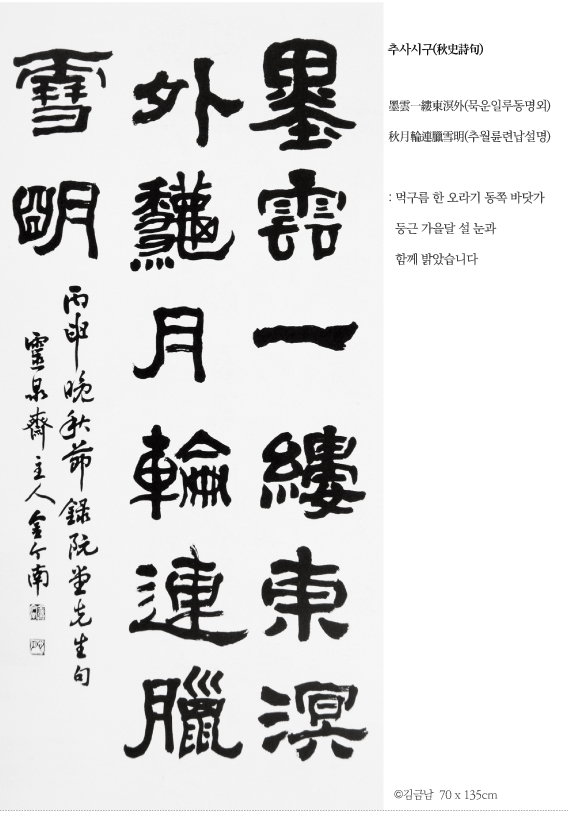 墨雲一縷東溟
外龝月輪連臘
雪明
丙申晩秋節錄阮堂先生句
靈泉齋主人金今南
추사시구(秋史詩句)
墨雲一縷東溟外(묵운일루동명외)
秋月輪連臘雪明(추월륜련납설명)
: 먹구름 한 오라기 동쪽 바닷가
둥근 가을달 설 눈과
함께 밝았습니다
©김금남 70 x 135cm